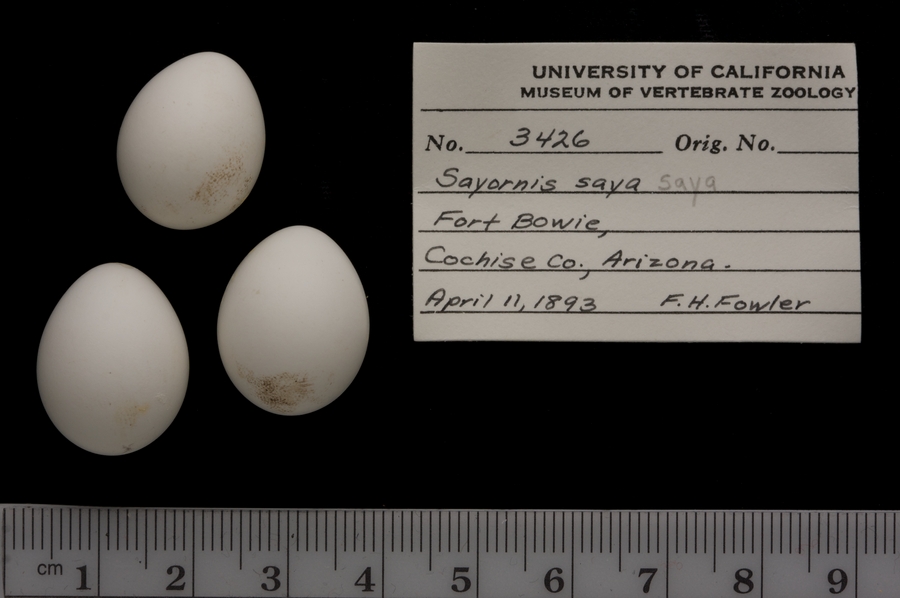 UNIVERSITY OF CALIFORNIA
MUSEUM OF VERTEBRATE ZOOLOGY
No. 3426 Orig. No.
Sayornis saya saya
Fort Bowie,
Cochise Co., Arizona.
April 11, 1893 F.H. Fowler
cm 1 2 3 4 5 6 7 8 9